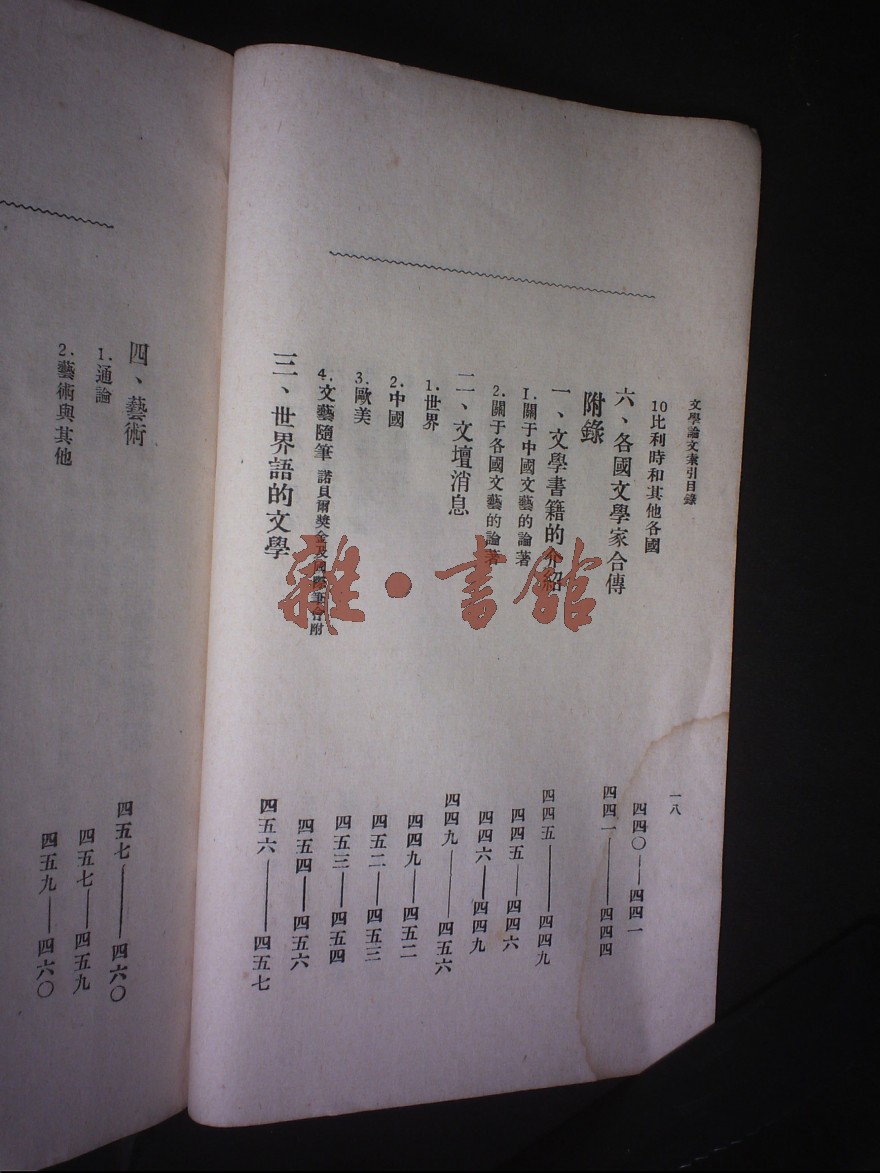 文學論文索引目錄
一八
10比利時和其他各國 四四〇——四四一
六、各國文學家合傳 四四一——四四四
附錄
一、文學書籍的介紹 四四五——四四九
1.關于中國文藝的論著 四四五——四四六
2.關于各國文藝的論著 四四六——四四九
二、文壇消息 四四九——四五六
1.世界 四四九——四五二
2.中國 四五二——四五三
3.歐美 四五三——四五四
4.文藝隨筆 諾貝爾獎金及國際筆會附 四五四——四五六
三、世界語的文學 四五六——四五七
四、藝術 四五七——四六〇
1.通論 四五七——四五九
2.藝術與其他 四五九——四六〇
雜·書館